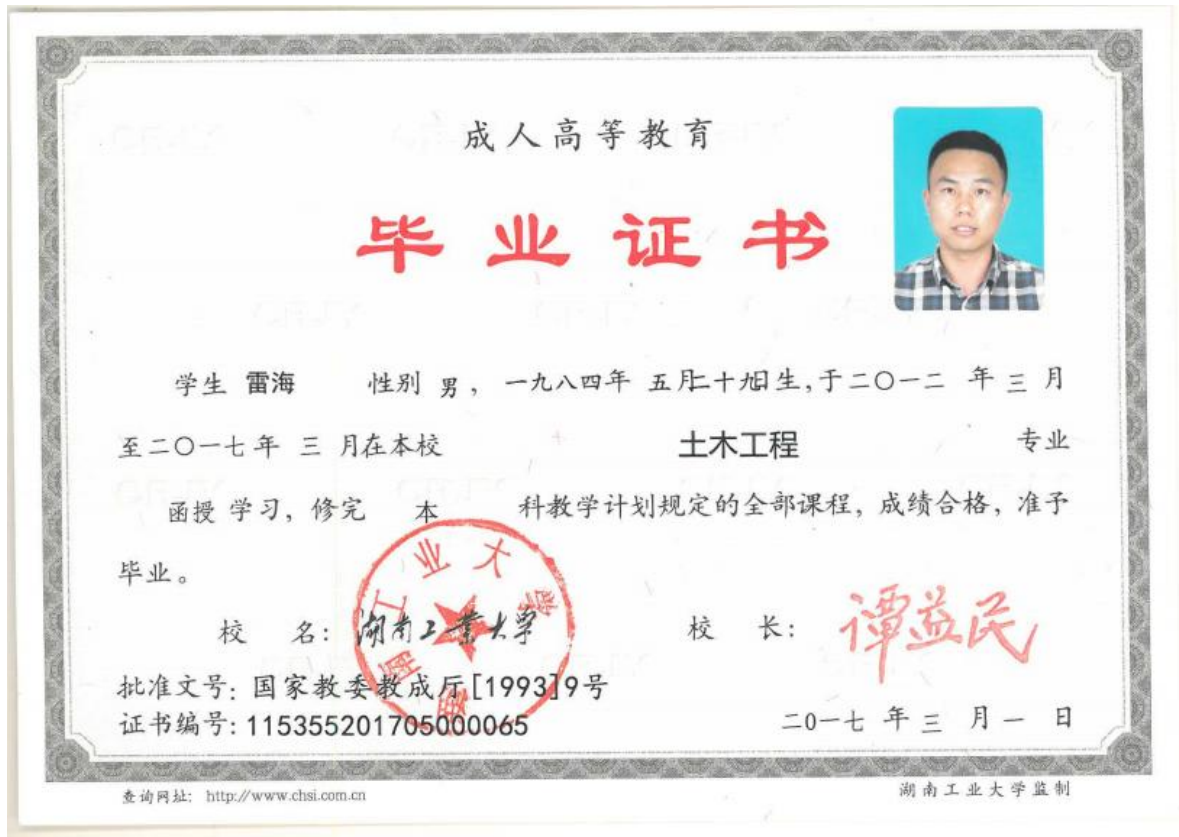 成人高等教育
毕业证书
学生 雷海 性别 男， 一九八四年 五月二十九日生，于二〇一二 年 三 月
至二〇一七年 三 月在本校 土木工程 专业
函授 学习，修完 本 科教学计划规定的全部课程，成绩合格，准予
毕业。
校 名：湖南工业大学 校 长：谭益民
湖南工业大学
批准文号：国家教委教成厅[1993]9号
证书编号：115355201705000065
二0一七 年 三 月 一 日
查询网址： http://www.chsi.com.cn
湖南工业大学监制